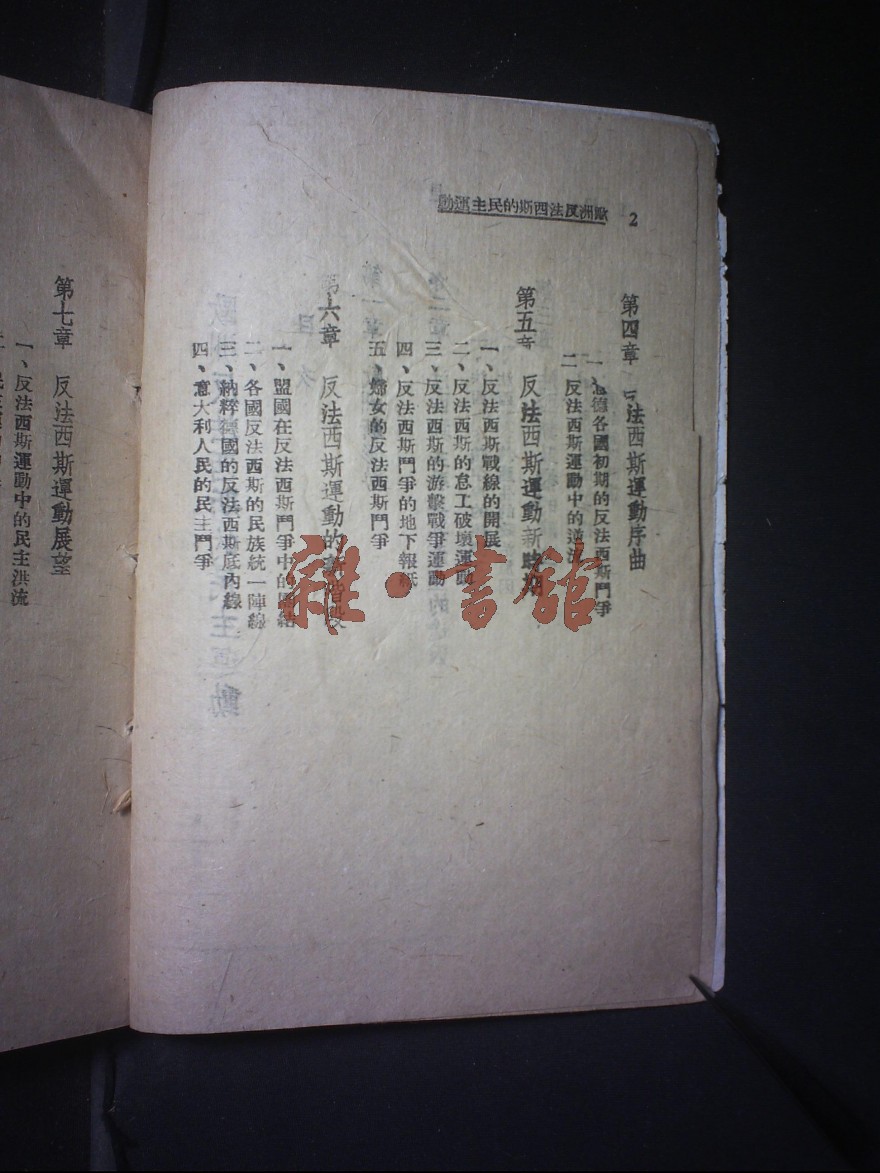 歐洲反法西斯的民主運動
2
第四章 反法西斯運動序曲
一、意德各國初期的反法西斯鬥爭
二、反法西斯運動中的逆流
第五章 反法西斯運動新
一、反法西斯戰線的開展
二、反法西斯的怠工破壞運動
三、反法西斯的游擊戰爭運動
四、反法西斯鬥爭的地下報紙
五、婦女的反法西斯鬥爭
第六章 反法西斯運動的新階段
一、盟國在反法西斯鬥爭中的團結
二、各國反法西斯的民族統一陣線
三、納粹德國的反法西斯底內線
四、意大利人民的民主鬥爭
第七章 反法西斯運動展望
一、反法西斯運動中的民主洪流
雜·書舘